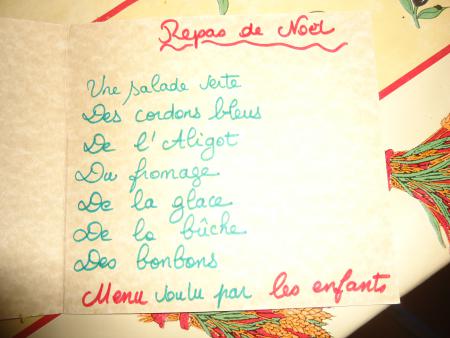 Repas de Noël
Une salade verte
Des cordons bleus
De l'Aligot
Du fromage
De la glace
De la bûche
Des bonbons
Menu voulu par les enfants